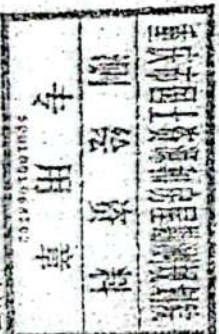 重庆市国土资源和房屋勘测规划院
测绘资料
专用章